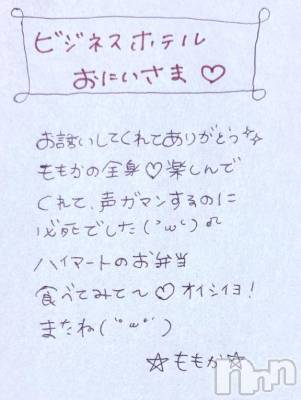 ビジネスホテル
おにいさま♡
お誘いしてくれてありがとう✨
ももかの全身♡楽しんで
くれて、声ガマンするのに
必死でした(´>ω<`)♫
ハイマートのお弁当
食べてみて〜♡オイシイヨ!
またね(*´ω`*)
☆ももか☆